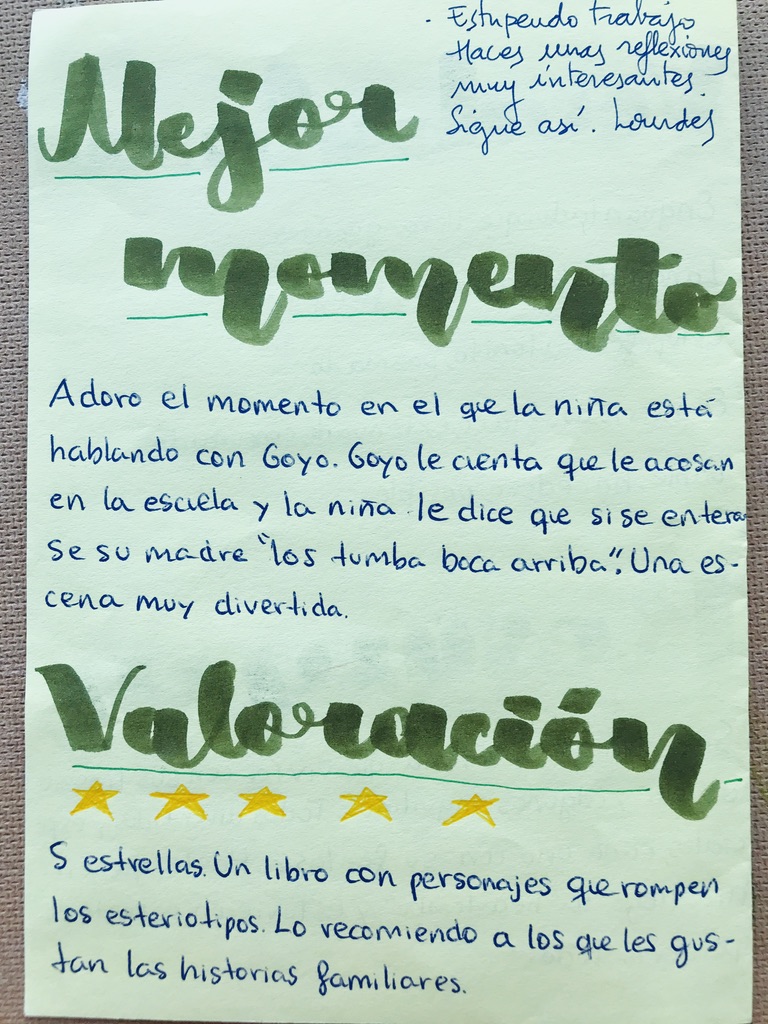 · Estupendo trabajo
Haces unas reflexiones
muy interesantes.
Sigue así. Lourdes
Mejor
momento
Adoro el momento en el que la niña está
hablando con Goyo. Goyo le cuenta que le acosan
en la escuela y la niña le dice que si se entera
se su madre "los tumba boca arriba". Una es-
cena muy divertida.
Valoración
5 estrellas. Un libro con personajes que rompen
los esteriotipos. Lo recomiendo a los que les gus-
tan las historias familiares.